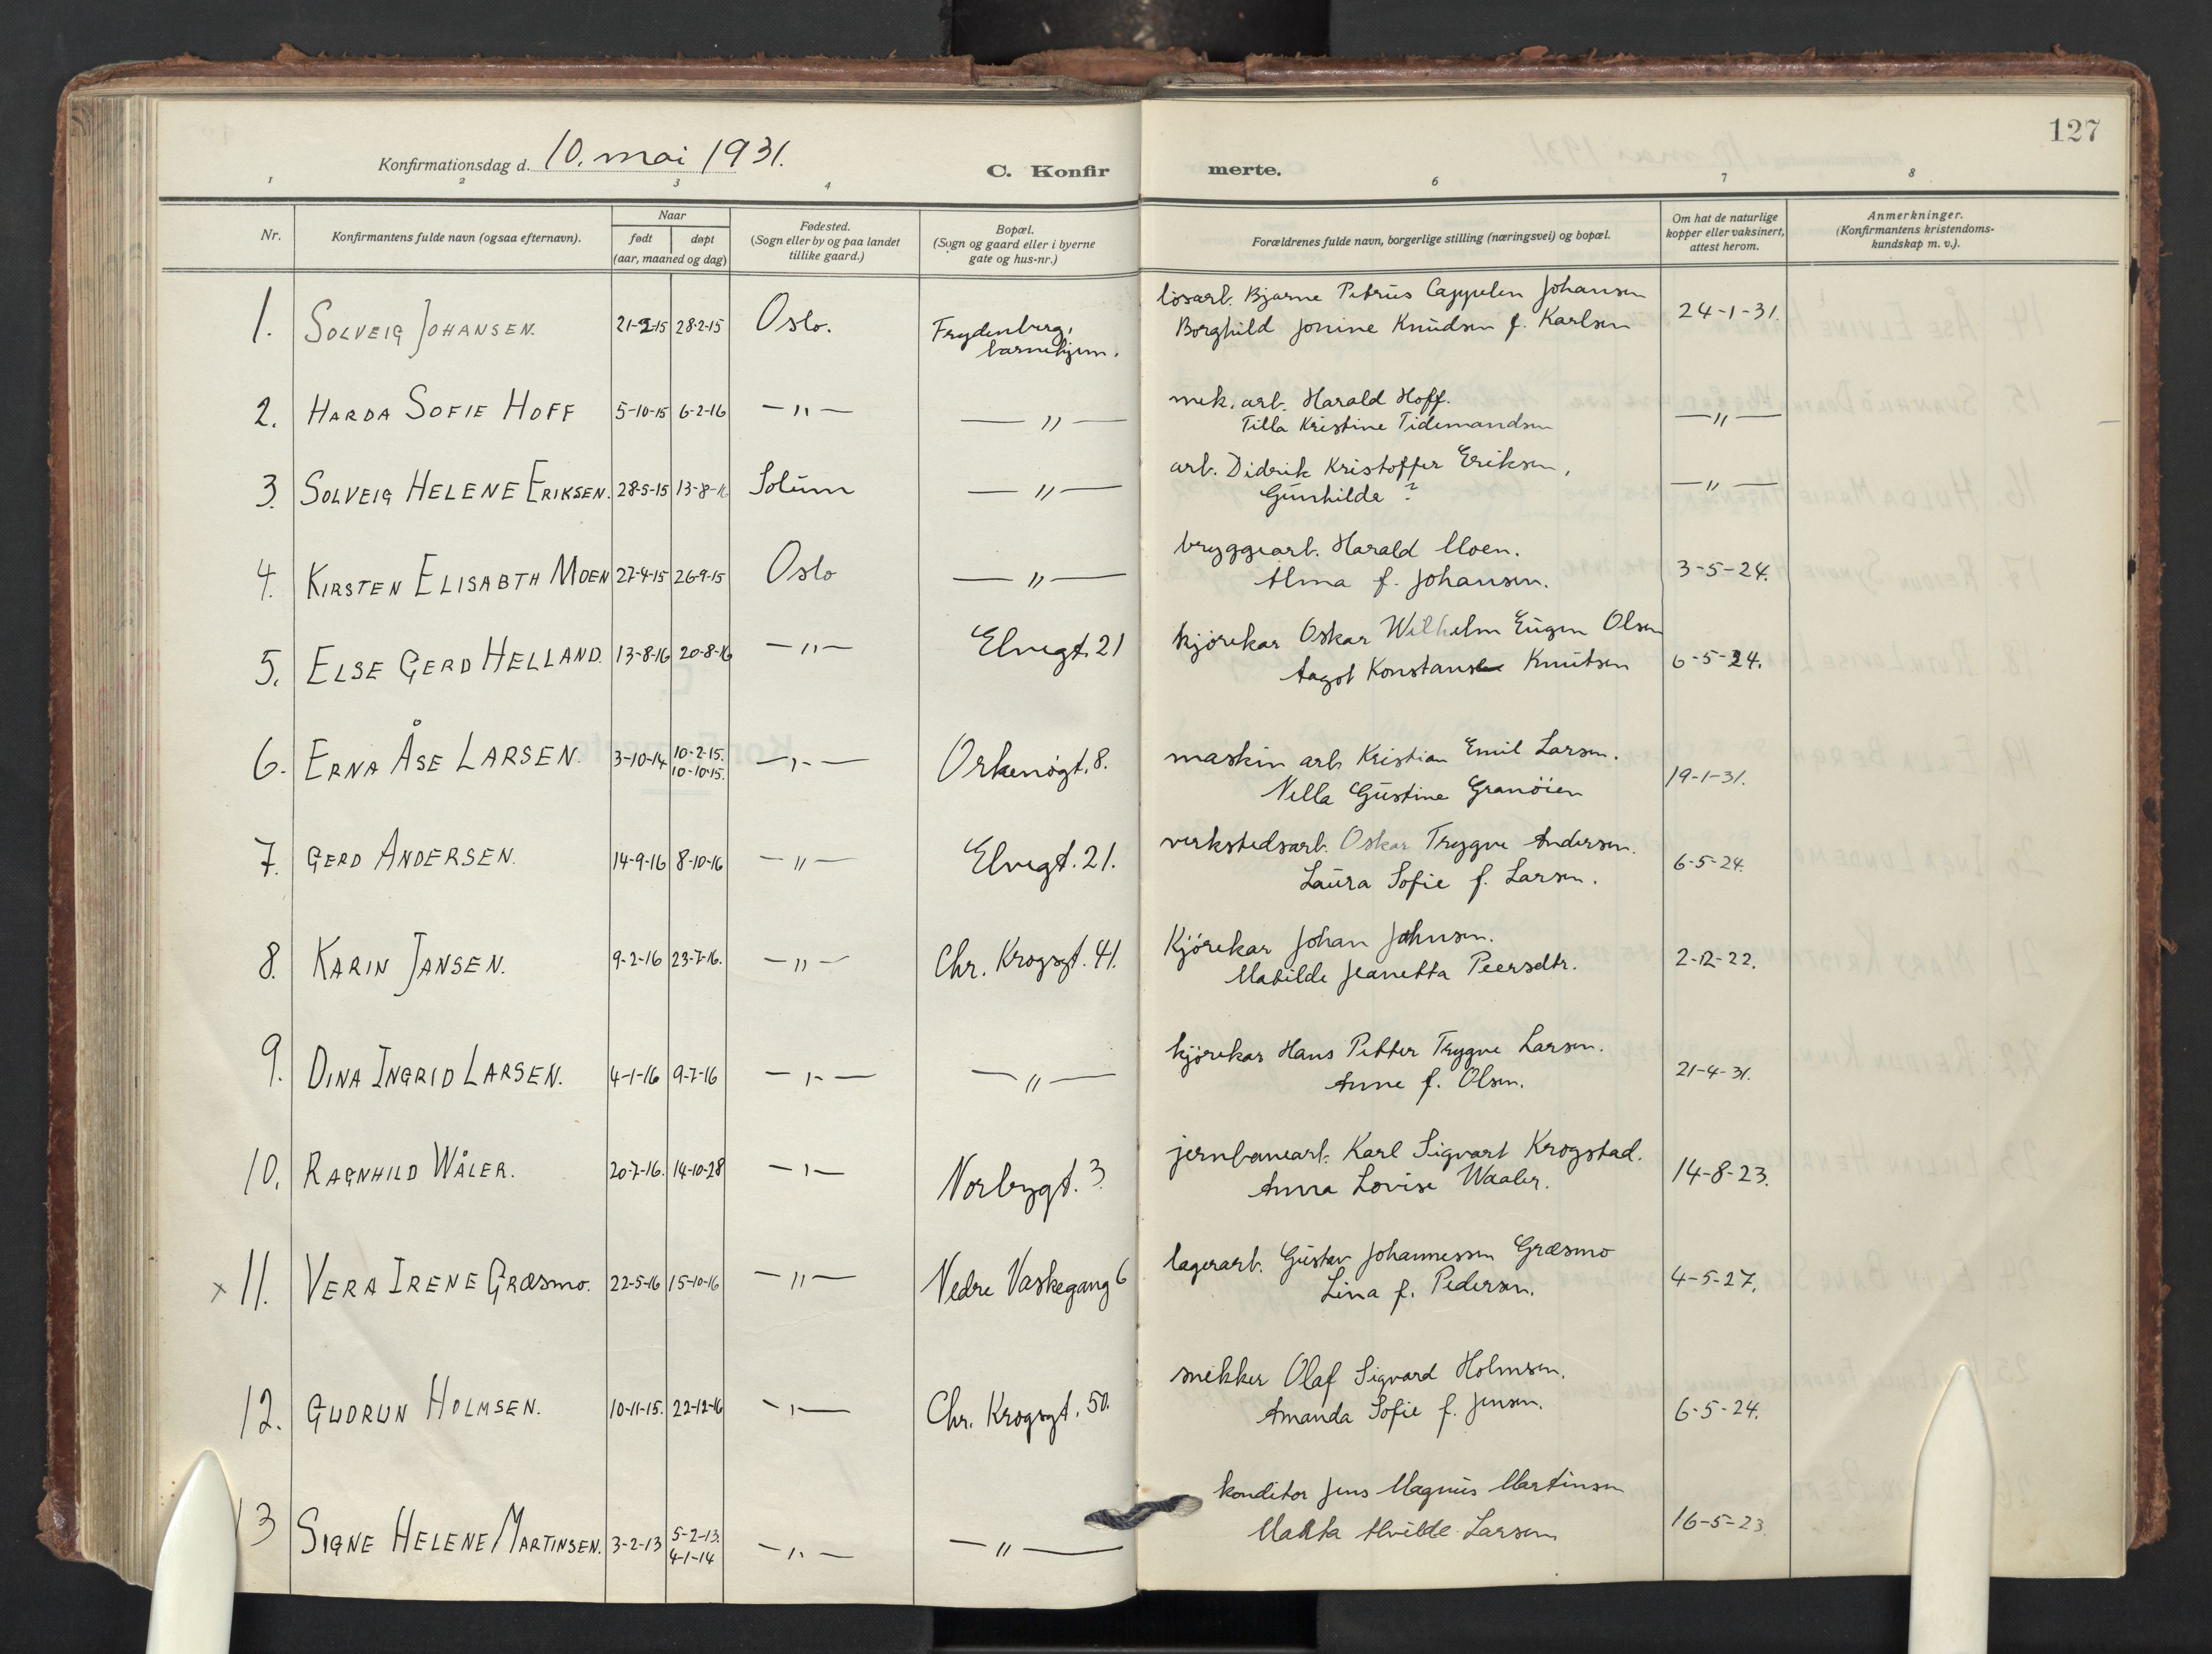 127
Konfirmationsdag d. 10. mai 1931.
C. Konfir merte.
1 2 3 4 6 7 8
Nr.
Konfirmantens fulde navn (ogsaa efternavn).
Naar
født døpt
(aar, maaned og dag)
Fødested.
(Sogn eller by og paa landet
tillike gaard.)
Bopæl.
(Sogn og gaard eller i byerne
gate og hus-nr.)
Forældrenes fulde navn, borgerlige stilling (næringsvei) og bopæl.
Om hat de naturlige
kopper eller vaksinert,
attest herom.
Anmerkninger.
(Konfirmantens kristendoms-
kundskap m. v.).
1. SOLVEIG JOHANSEN. 21-2-15 28-2-15 Oslo. Frydenberg,
barnehjem.
løsarb. Bjarne Petrus Cappelen Johansen
Borghild Jonine Knudsen f. Karlsen
24-1-31.
2. HARDA SOFIE HOFF 5-10-15 6-2-16 —"— —"—
mek. arb. Harald Hoff.
Tilla Kristine Tidemandsen
—"—
3. SOLVEIG HELENE ERIKSEN. 28-5-15 13-8-16 Solum —"—
arb. Didrik Kristoffer Eriksen,
Gunhilde ?
—"—
4. KIRSTEN ELISABTH MOEN 27-4-15 26-9-15 Oslo —"—
bryggearb. Harald Moen.
Alma f. Johansen.
3-5-24.
5. ELSE GERD HELLAND. 13-8-16 20-8-16 —"— Elvegt. 21
kjørekar Oskar Wilhelm Eugen Olsen
Aagot Konstanse Knutsen
6-5-24.
6. ERNA ÅSE LARSEN. 3-10-14 10-2-15.
10-10-15.
—"— Orkenøgt. 8.
maskin arb. Kristian Emil Larsen.
Nella Gustine Granöien
19-1-31.
7. GERD ANDERSEN. 14-9-16 8-10-16 —"— Elvegt. 21.
verkstedsarb. Oskar Trygve Andersen.
Laura Sofie f. Larsen.
6-5-24.
8. KARIN JANSEN. 9-2-16 23-7-16. —"— Chr. Krogsgt. 41.
Kjørekar Johan Johnsen.
Matilde Jeanetta Peersdtr.
2-12-22.
9. DINA INGRID LARSEN. 4-1-16 9-7-16 —"— —"—
kjørekar Hans Petter Trygve Larsen.
Anne f. Olsen.
21-4-31.
10. RAGNHILD WÅLER. 20-7-16. 14-10-28 —"— Norbygt. 3.
jernbanearb. Karl Sigvart Krogstad.
Anna Lovise Waaler.
14-8-23.
x 11. VERA IRENE Græsmo. 22-5-16 15-10-16 —"— Nedre Vaskegang 6
lagerarb. Gustav Johannessen Græsmo
Lina f. Pedersen.
4-5-27.
12. GUDRUN HOLMSEN. 10-11-15. 22-12-16 —"— Chr. Krogsgt. 50.
snekker Olaf Sigvard Holmsen.
Amanda Sofie f. Jensen.
6-5-24.
13 SIGNE HELENE MARTINSEN. 3-2-13 5-2-13.
4-1-14
—"— —"—
konditor Jens Magnus Martinsen
Marta Alvilde Larsen
16-5-23.